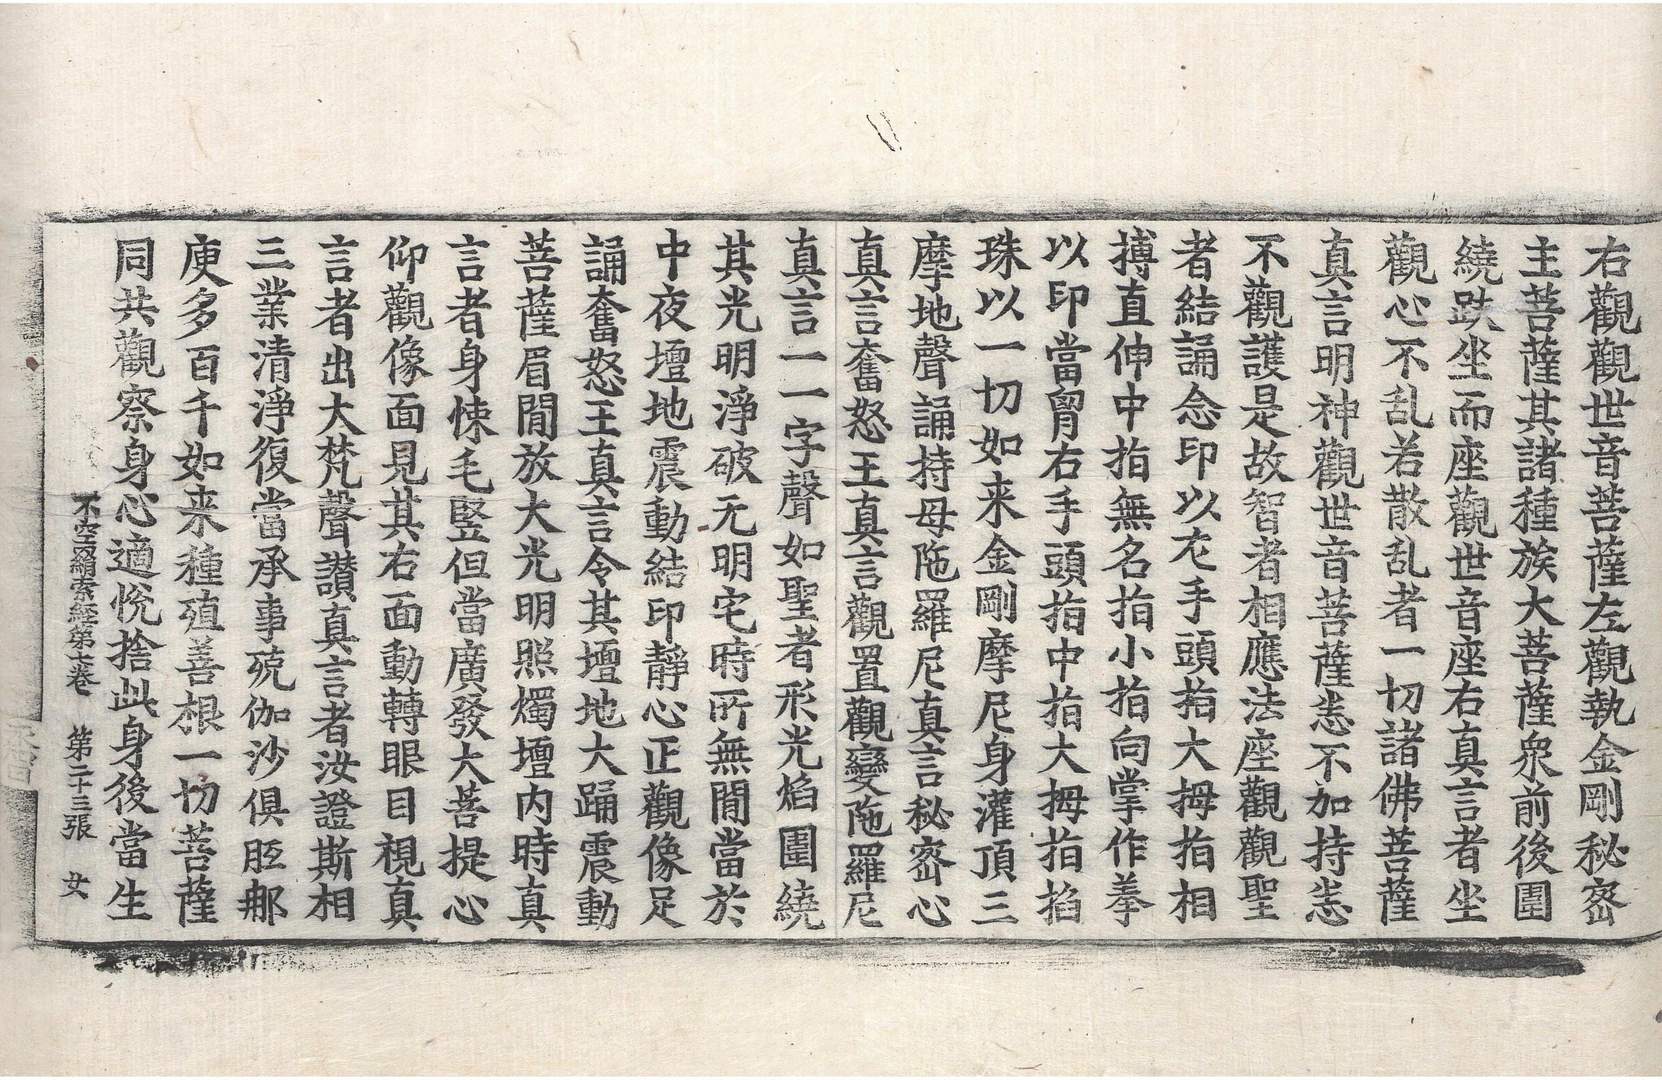 右觀觀世音菩薩左觀執金剛秘密
主菩薩其諸種族大菩薩衆前後圍
繞趺坐而座觀世音座右真言者坐
觀心不乱若散乱者一切諸佛菩薩
真言明神觀世音菩薩恙不加持恙
不觀護是故智者相應法座觀觀聖
者結誦念印以左手頭指大拇指相
搏直伸中指無名指小指向掌作拳
以印當胷右手頭指中指大拇指掐
珠以一切如来金剛摩尼身灌頂三
摩地聲誦持母陁羅尼真言秘密心
真言奮怒王真言觀置觀變陁羅尼
真言一一字聲如聖者形光焰圍繞
其光明淨破无明宅時所無間當於
中夜壇地震動結印靜心正觀像足
誦奮怒王真言令其壇地大踊震動
菩薩眉間放大光明照燭壇内時真
言者身悚毛竪但當廣發大菩提心
仰觀像面見其右面動轉眼目視真
言者出大梵聲讃真言者汝證斯相
三業清淨復當承事殑伽沙俱胝那
庾多百千如来種殖善根一切菩薩
同共觀察身心適悅捨此身後當生
不空羂索經第七卷 第二十三張 女